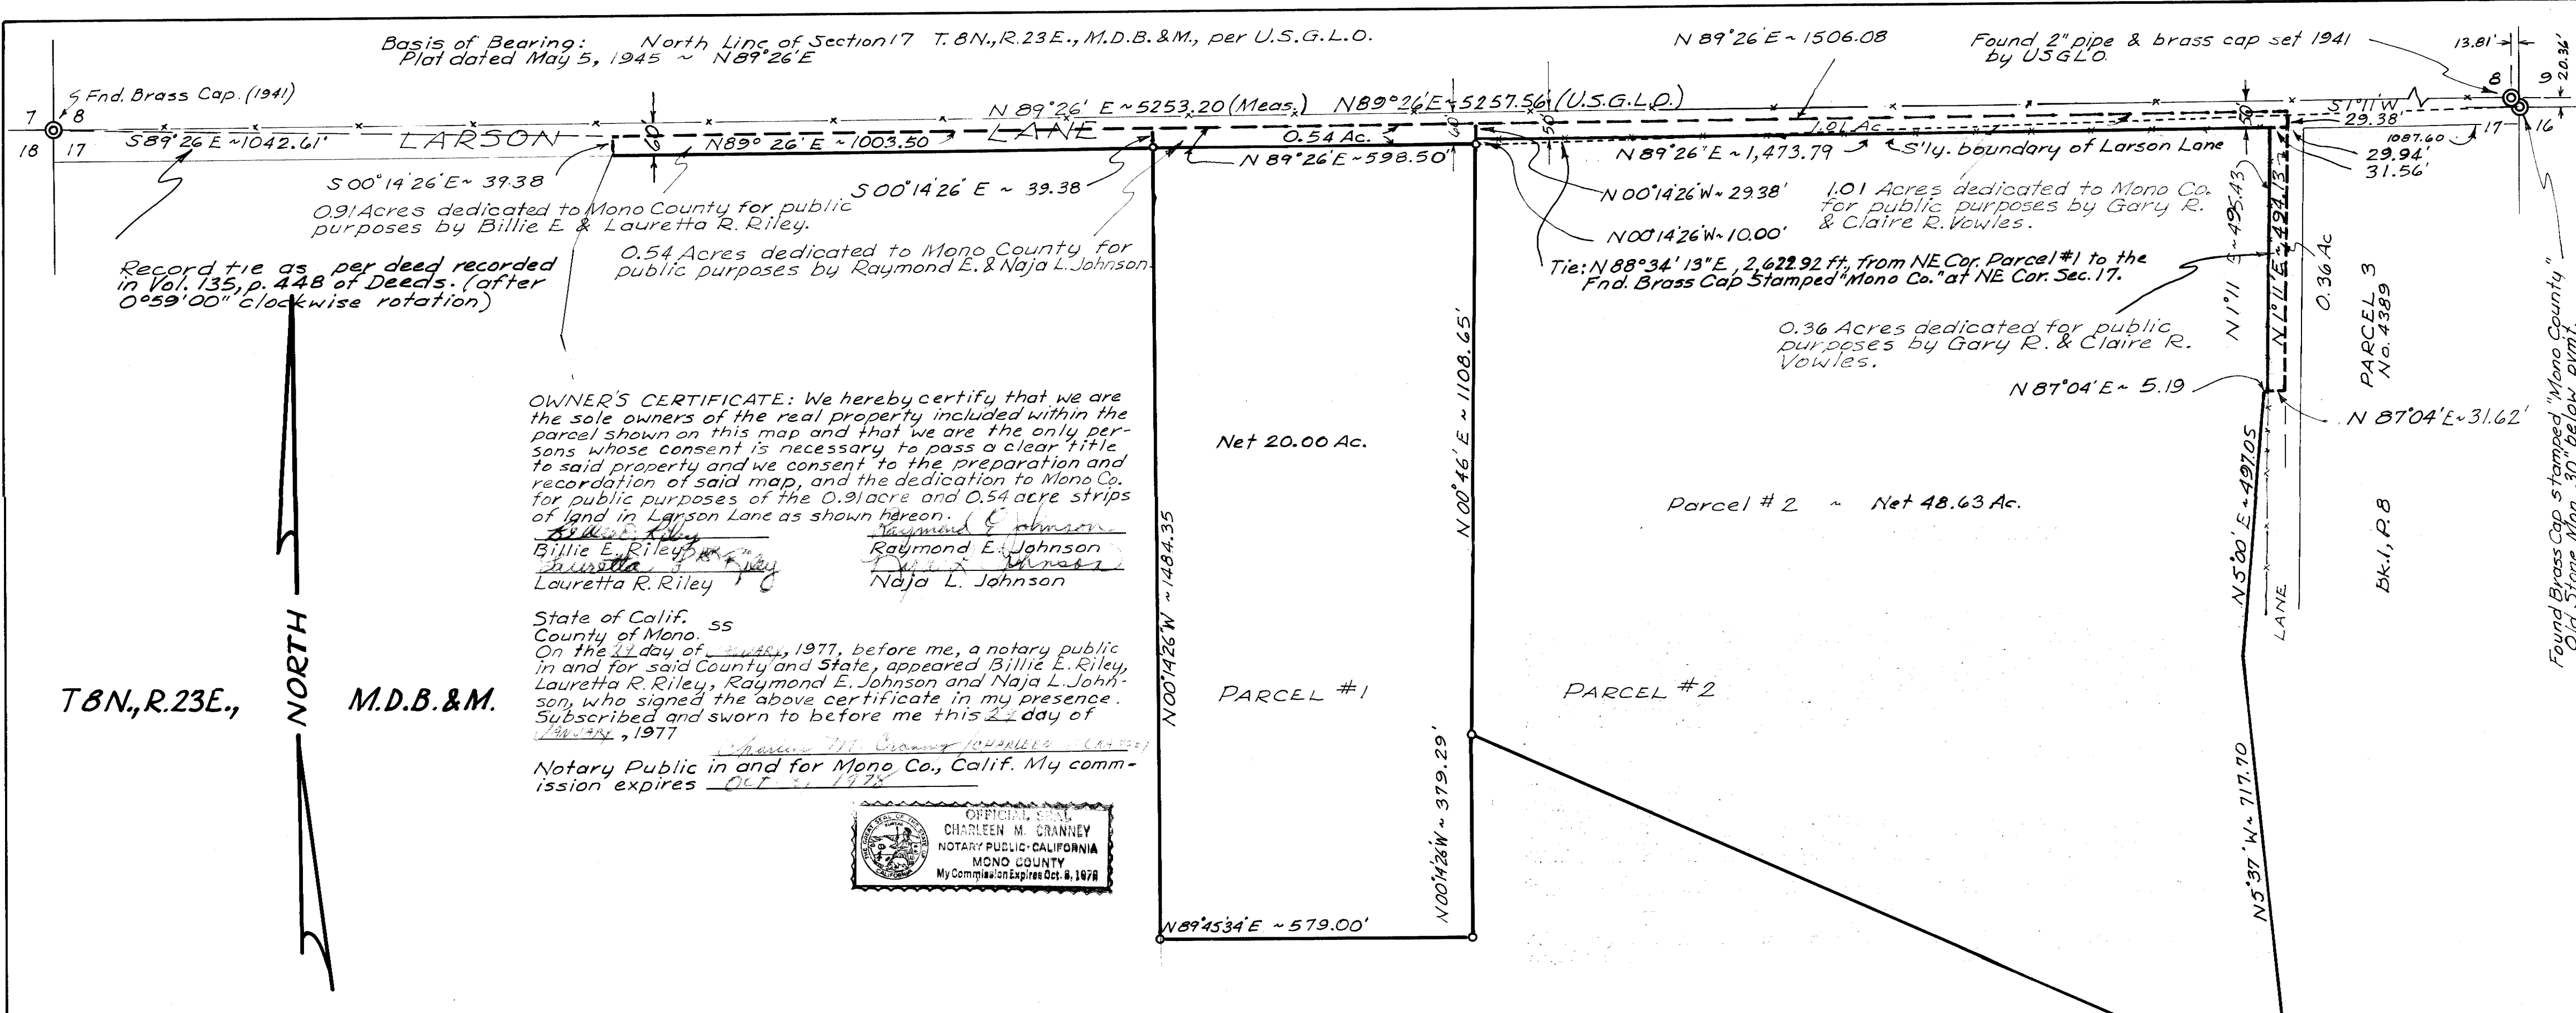 Basis of Bearing: North Line of Section 17 T. 8N., R. 23E., M.D.B. & M., per U.S.G.L.O.
Plat dated May 5, 1945 ~ N89°26'E
N 89°26'E ~ 1506.08
Found 2" pipe & brass cap set 1941
by USGLO.
13.81'
20.36'
8 9
17 16
Fnd. Brass Cap. (1941)
7 8
18 17
S89°26'E ~ 1042.61'
LARSON LANE
60'
N89°26'E ~ 1003.50
N 89°26' E ~ 5253.20 (Meas.) N89°26'E ~ 5257.56 (U.S.G.L.O.)
0.54 Ac.
N 89°26'E ~ 598.50'
60'
50'
1.01 Ac
N 89°26'E ~ 1,473.79
S'ly. boundary of Larson Lane
50'
S1°11'W
29.38'
1087.60
29.94'
31.56'
S 00°14'26"E ~ 39.38
S 00°14'26" E ~ 39.38
0.91 Acres dedicated to Mono County for public
purposes by Billie E & Lauretta R. Riley.
0.54 Acres dedicated to Mono County for
public purposes by Raymond E. & Naja L. Johnson.
N 00°14'26"W ~ 29.38'
N00°14'26"W ~ 10.00'
1.01 Acres dedicated to Mono Co.
for public purposes by Gary R.
& Claire R. Vowles.
Tie: N 88°34'13"E, 2,622.92 ft. from NE Cor. Parcel #1 to the
Fnd. Brass Cap Stamped "Mono Co." at NE Cor. Sec. 17.
Record tie as per deed recorded
in Vol. 135, p. 448 of Deeds. (after
0°59'00" clockwise rotation)
0.36 Acres dedicated for public
purposes by Gary R. & Claire R.
Vowles.
N 1°11' E ~ 495.43'
N 1°11'E ~ 494.13'
0.36 Ac
PARCEL 3
No. 4389
Bk. 1, P. 8
N 87°04'E ~ 5.19
N 87°04'E ~ 31.62'
Found Brass Cap stamped "Mono County"
Old Stone Mon. 30" below pvmt.
OWNER'S CERTIFICATE: We hereby certify that we are
the sole owners of the real property included within the
parcel shown on this map and that we are the only per-
sons whose consent is necessary to pass a clear title
to said property and we consent to the preparation and
recordation of said map, and the dedication to Mono Co.
for public purposes of the 0.91 acre and 0.54 acre strips
of land in Larson Lane as shown hereon.
Raymond E Johnson
Billie E. Riley Raymond E. Johnson
Lauretta R. Riley Naja L. Johnson
State of Calif.
County of Mono. SS
On the day of JANUARY, 1977, before me, a notary public
in and for said County and State, appeared Billie E. Riley,
Lauretta R. Riley, Raymond E. Johnson and Naja L. John-
son, who signed the above certificate in my presence.
Subscribed and sworn to before me this day of
JANUARY, 1977
Notary Public in and for Mono Co., Calif. My comm-
ission expires OCT 1978
OFFICIAL SEAL
CHARLEEN M. CRANNEY
NOTARY PUBLIC-CALIFORNIA
MONO COUNTY
My Commission Expires Oct. 8, 1978
T8N., R.23E., NORTH M.D.B. & M.
Net 20.00 Ac.
PARCEL #1
N00°14'26"W ~ 1484.35
N 00°46' E ~ 1108.65'
N00°14'26"W ~ 379.29'
N89°45'34"E ~ 579.00'
Parcel #2 ~ Net 48.63 Ac.
PARCEL #2
N5°00'E ~ 497.05
LANE
N5°37'W ~ 717.70